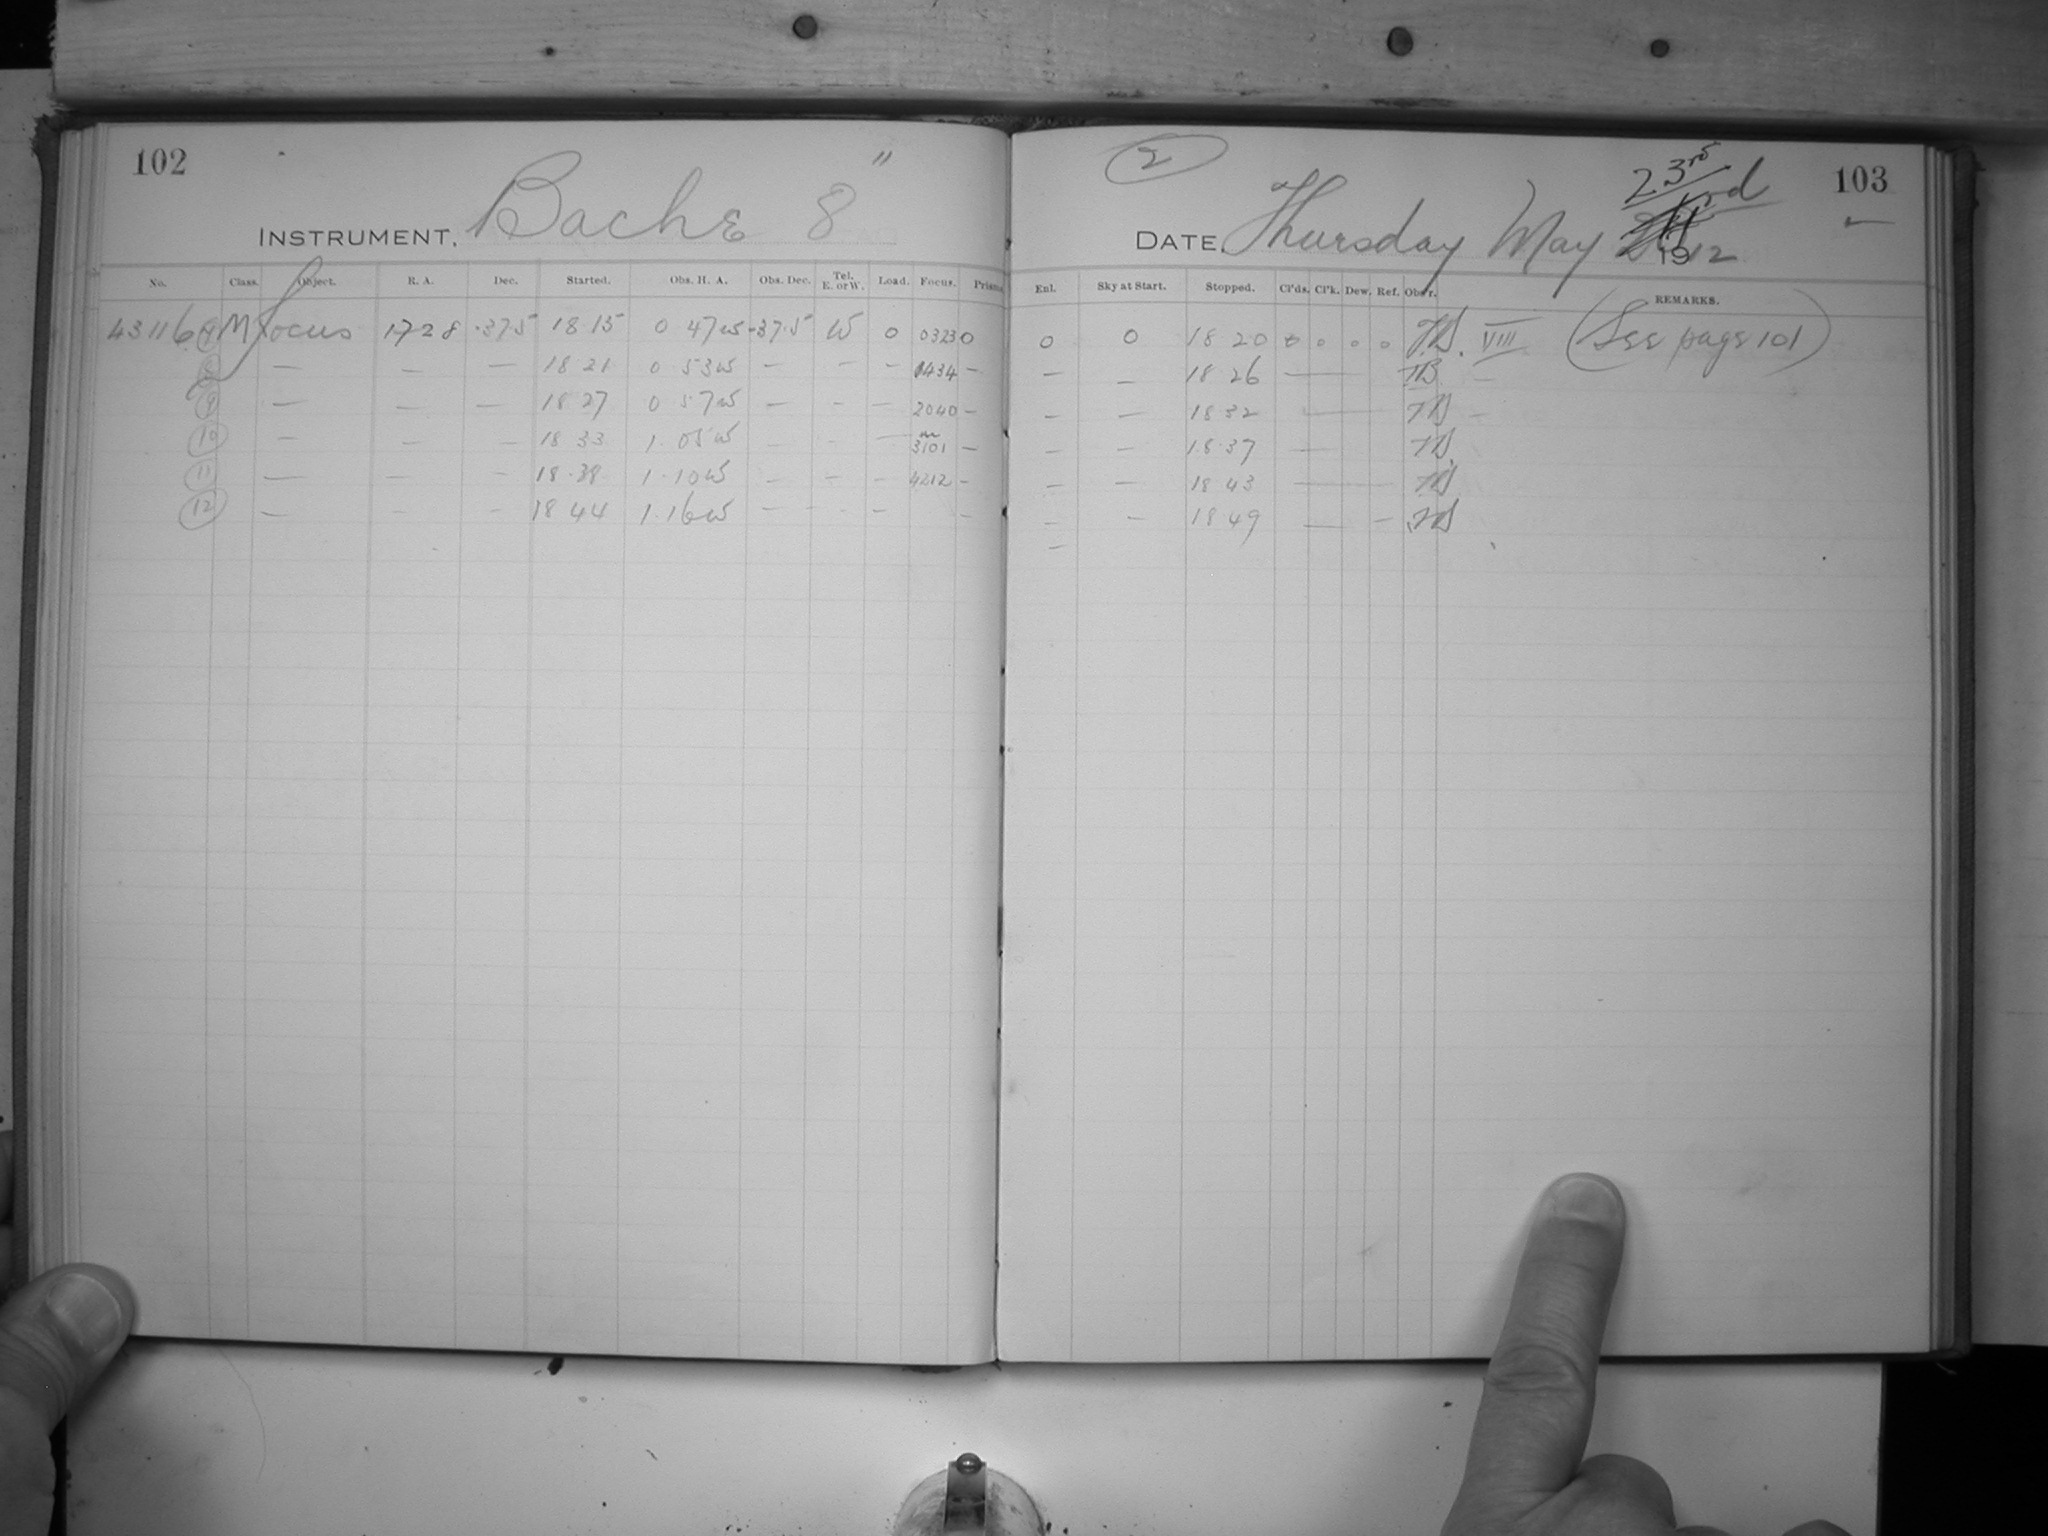 102
INSTRUMENT, Bache 8"
No. Class. Object. R. A. Dec. Started. Obs. H. A. Obs. Dec. Tel. E. or W. Load. Focus. Prism.
43116 M Focus 17 28 -37.5 18 15 0 47 W -37.5 W 0 0323 0
— — — 18 21 0 53 W — — — 0434 —
9 — — — 18 27 0 57 W — - — 2040 —
10 — - — 18 33 1.05 W — - — 3101 —
11 — — — 18.38 1.10 W — — - 4212 -
12 — - — 18 44 1.16 W — - - -
2 103
23rd
DATE, Thursday May 1912
Enl. Sky at Start. Stopped. Cl'ds. Cl'k. Dew. Ref. Obs'r. REMARKS.
0 0 18 20 0 0 0 0 VIII (See page 101)
— — 18 26 —
— — 18 32 —
— — 18.37 —
— — 18 43 —
— — 18 49 — —
—